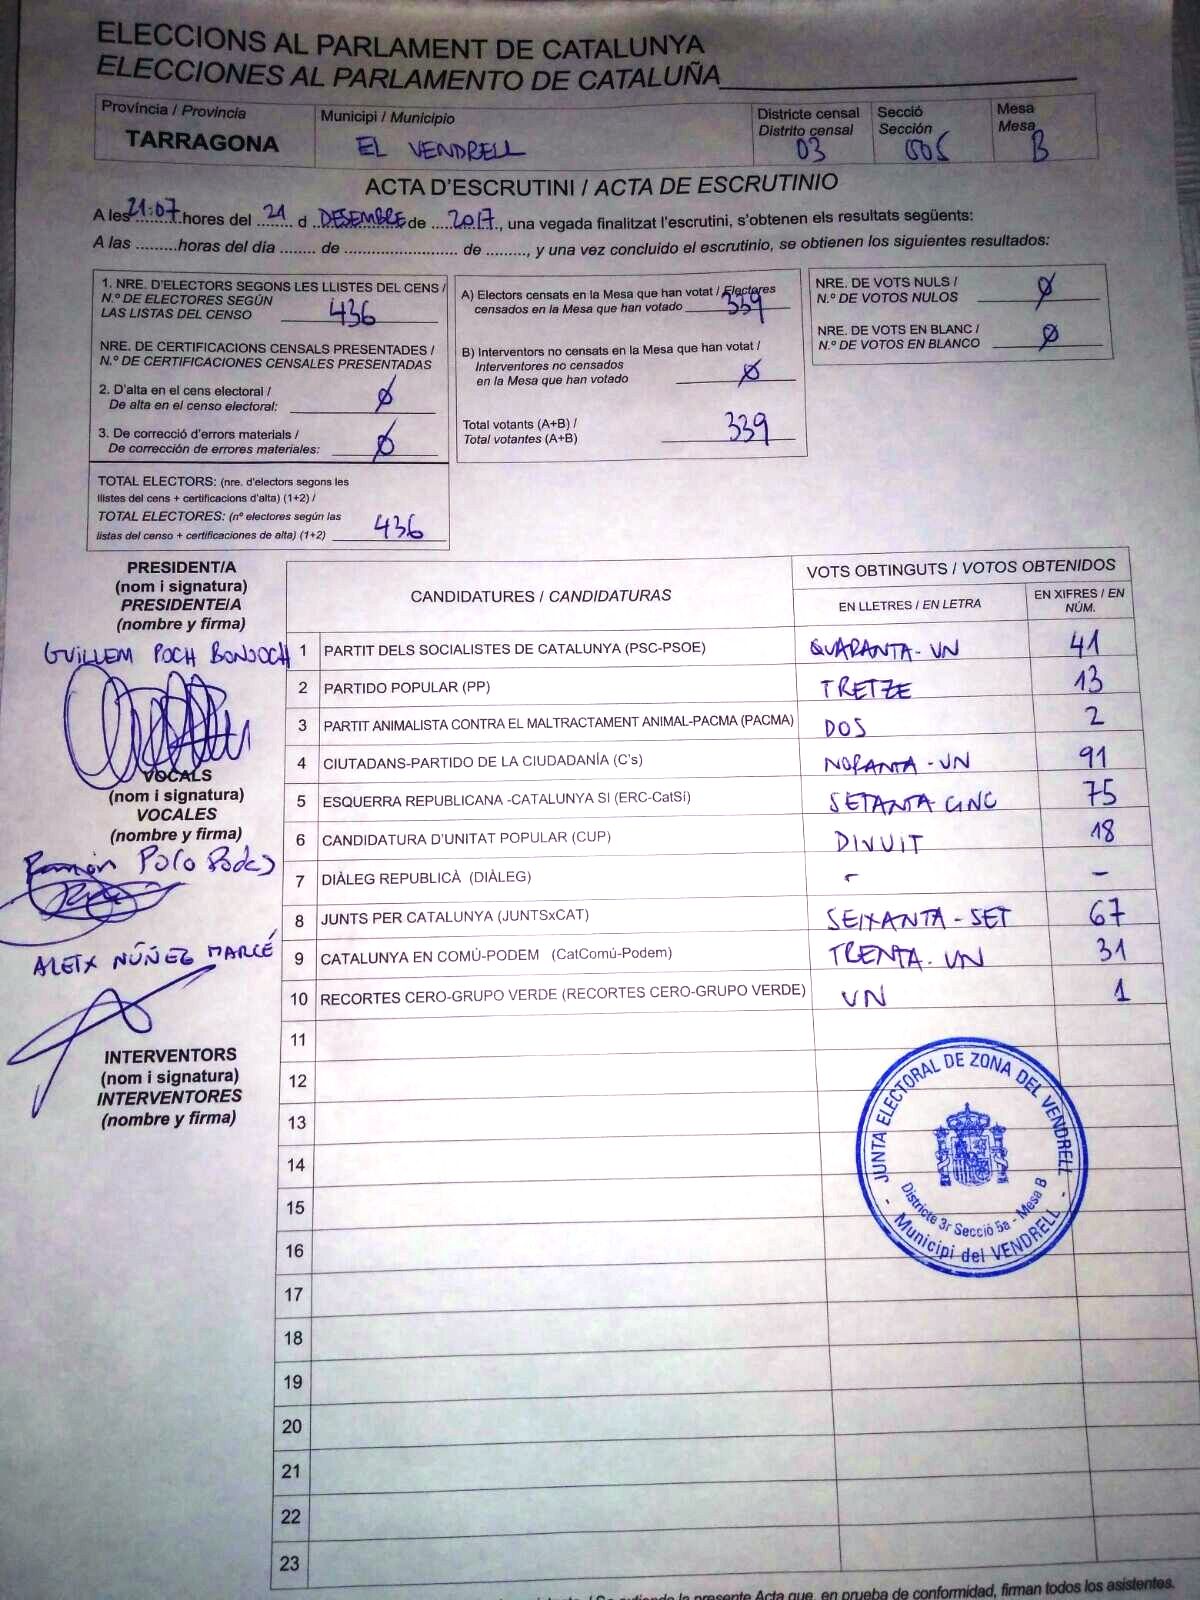 ELECCIONS AL PARLAMENT DE CATALUNYA
ELECCIONES AL PARLAMENTO DE CATALUÑA
Província / Provincia
TARRAGONA
Municipi / Municipio
EL VENDRELL
Districte censal
Distrito censal
03
Secció
Sección
005
Mesa
Mesa
B
ACTA D'ESCRUTINI / ACTA DE ESCRUTINIO
A les 21:07 hores del 21 d DESEMBRE de 2017, una vegada finalitzat l'escrutini, s'obtenen els resultats següents:
A las .........horas del día ........ de ......................... de ........., y una vez concluido el escrutinio, se obtienen los siguientes resultados:
1. NRE. D'ELECTORS SEGONS LES LLISTES DEL CENS /
N.º DE ELECTORES SEGÚN
LAS LISTAS DEL CENSO 436
NRE. DE CERTIFICACIONS CENSALS PRESENTADES /
N.º DE CERTIFICACIONES CENSALES PRESENTADAS
2. D'alta en el cens electoral /
De alta en el censo electoral: Ø
3. De correcció d'errors materials /
De corrección de errores materiales: Ø
TOTAL ELECTORS: (nre. d'electors segons les
llistes del cens + certificacions d'alta) (1+2) /
TOTAL ELECTORES: (nº electores según las
listas del censo + certificaciones de alta) (1+2) 436
A) Electors censats en la Mesa que han votat / Electores
censados en la Mesa que han votado 339
B) Interventors no censats en la Mesa que han votat /
Interventores no censados
en la Mesa que han votado Ø
Total votants (A+B) /
Total votantes (A+B) 339
NRE. DE VOTS NULS /
N.º DE VOTOS NULOS Ø
NRE. DE VOTS EN BLANC /
N.º DE VOTOS EN BLANCO Ø
PRESIDENT/A
(nom i signatura)
PRESIDENTE/A
(nombre y firma)
GUILLEM POCH BONSOCH
VOCALS
(nom i signatura)
VOCALES
(nombre y firma)
Ramón Polo
ALEIX NÚÑEZ MARCÉ
INTERVENTORS
(nom i signatura)
INTERVENTORES
(nombre y firma)
CANDIDATURES / CANDIDATURAS
VOTS OBTINGUTS / VOTOS OBTENIDOS
EN LLETRES / EN LETRA
EN XIFRES / EN
NÚM.
1 PARTIT DELS SOCIALISTES DE CATALUNYA (PSC-PSOE) QUARANTA-UN 41
2 PARTIDO POPULAR (PP) TRETZE 13
3 PARTIT ANIMALISTA CONTRA EL MALTRACTAMENT ANIMAL-PACMA (PACMA) DOS 2
4 CIUTADANS-PARTIDO DE LA CIUDADANÍA (C's) NORANTA-UN 91
5 ESQUERRA REPUBLICANA -CATALUNYA SI (ERC-CatSí) SETANTA CINC 75
6 CANDIDATURA D'UNITAT POPULAR (CUP) DIVUIT 18
7 DIÀLEG REPUBLICÀ (DIÀLEG) - -
8 JUNTS PER CATALUNYA (JUNTSxCAT) SEIXANTA-SET 67
9 CATALUNYA EN COMÚ-PODEM (CatComú-Podem) TRENTA-UN 31
10 RECORTES CERO-GRUPO VERDE (RECORTES CERO-GRUPO VERDE) UN 1
11
12
13
14
15
16
17
18
19
20
21
22
23
JUNTA ELECTORAL DE ZONA DEL VENDRELL
Districte 3r Secció 5a - Mesa B
- Municipi del VENDRELL -
la presente Acta que, en prueba de conformidad, firman todos los asistentes.